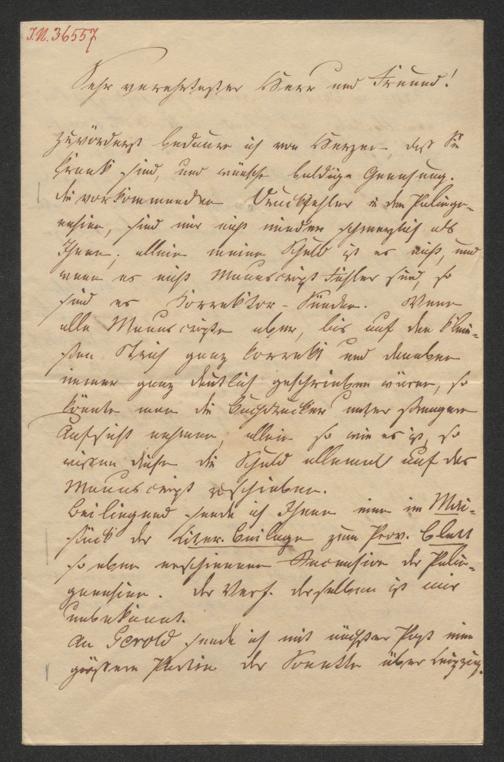 I.N. 36557
Sehr verehrtester Herr und Freund!
Zuvörderst bedaure ich von Herzen, daß Sie
krank sind, und wünsche baldige Genesung.
Die vorkommenden Druckfehler in den Palinge-
nesien, sind mir nicht minder schmerzlich als
Ihnen; allein meine Schuld ist es nicht, und
wenn es nicht Manuscript Fehler sind, so
sind es Korrektor-Sünden. Wenn
alle Manuscripte aber, bis auf den klein-
sten Strich ganz korrekt und daneben
immer ganz deutlich geschrieben wären, so
könnte man die Buchdrucker unter strengere
Aufsicht nehmen, allein so wie es ist, so
wissen diese die Schuld allemal auf das
Manuscript zu schieben.
Beiliegend sende ich Ihnen eine im Mai-
stück der liter. Beilage zum Prov. Blatt
so eben erschienene Recension der Palin-
genesien. Der Verf. derselben ist mir
unbekannt.
An Gerold sende ich mit nächster Post eine
größere Partie der Sonette über Leipzig.